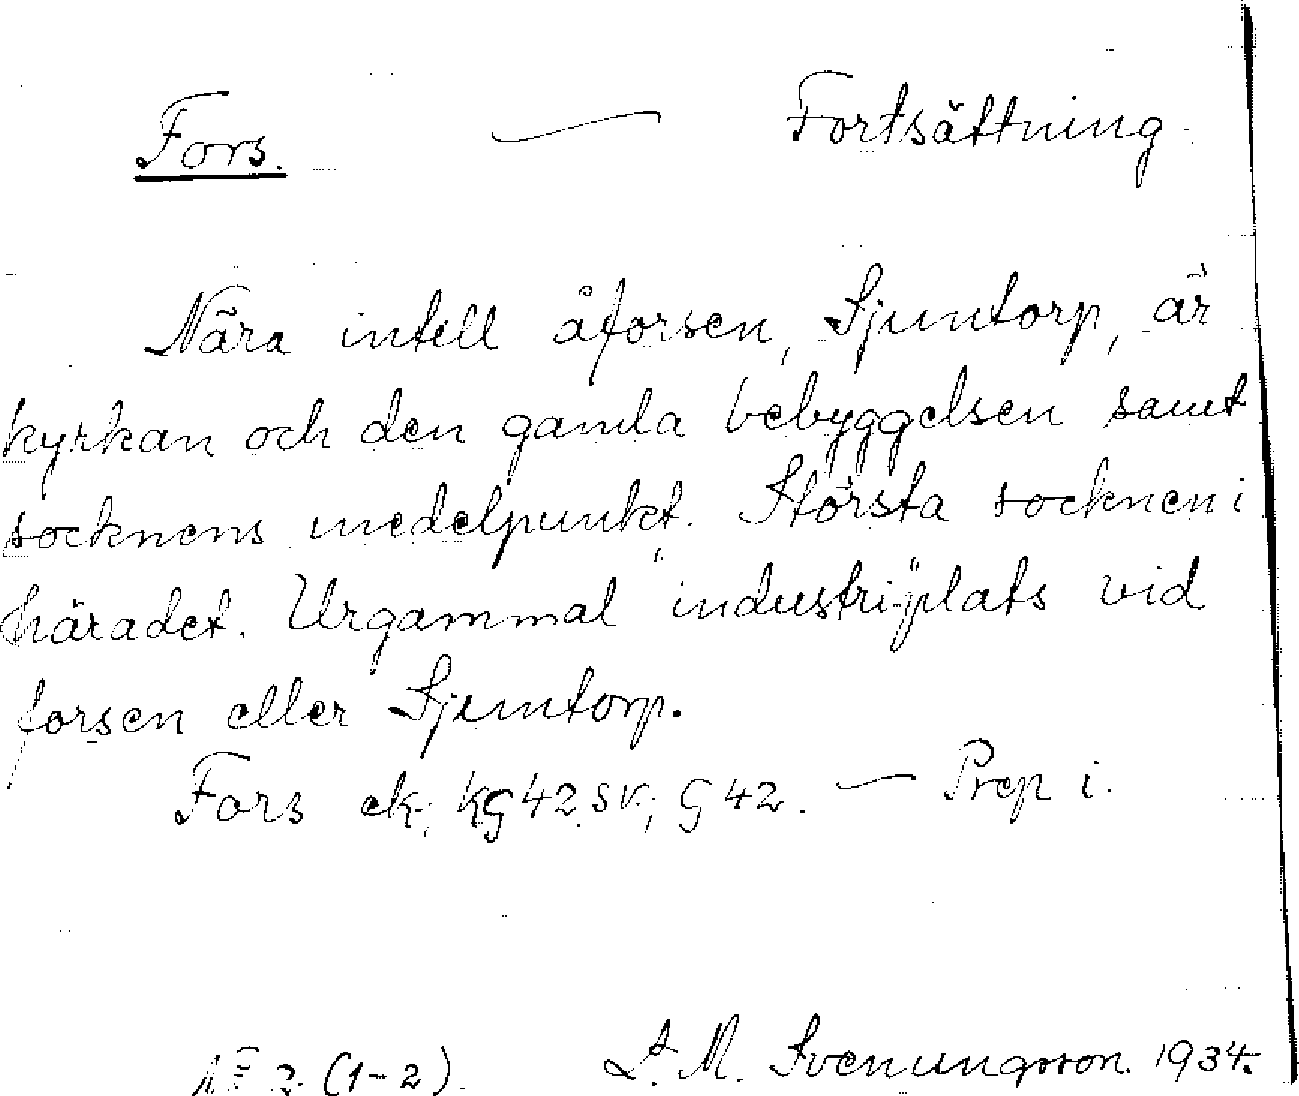 Fors. — Fortsättning.
Nära intill åforsen, Sjuntorp, är
kyrkan och den gamla bebyggelsen samt
socknens medelpunkt. Största socknen i
häradet. Urgammal "industri"plats vid
forsen eller Sjuntorp.
Fors ek; KG 42 SV; G 42. — Prep i.
2. (1-2). L. M. Svenungsson. 1934.